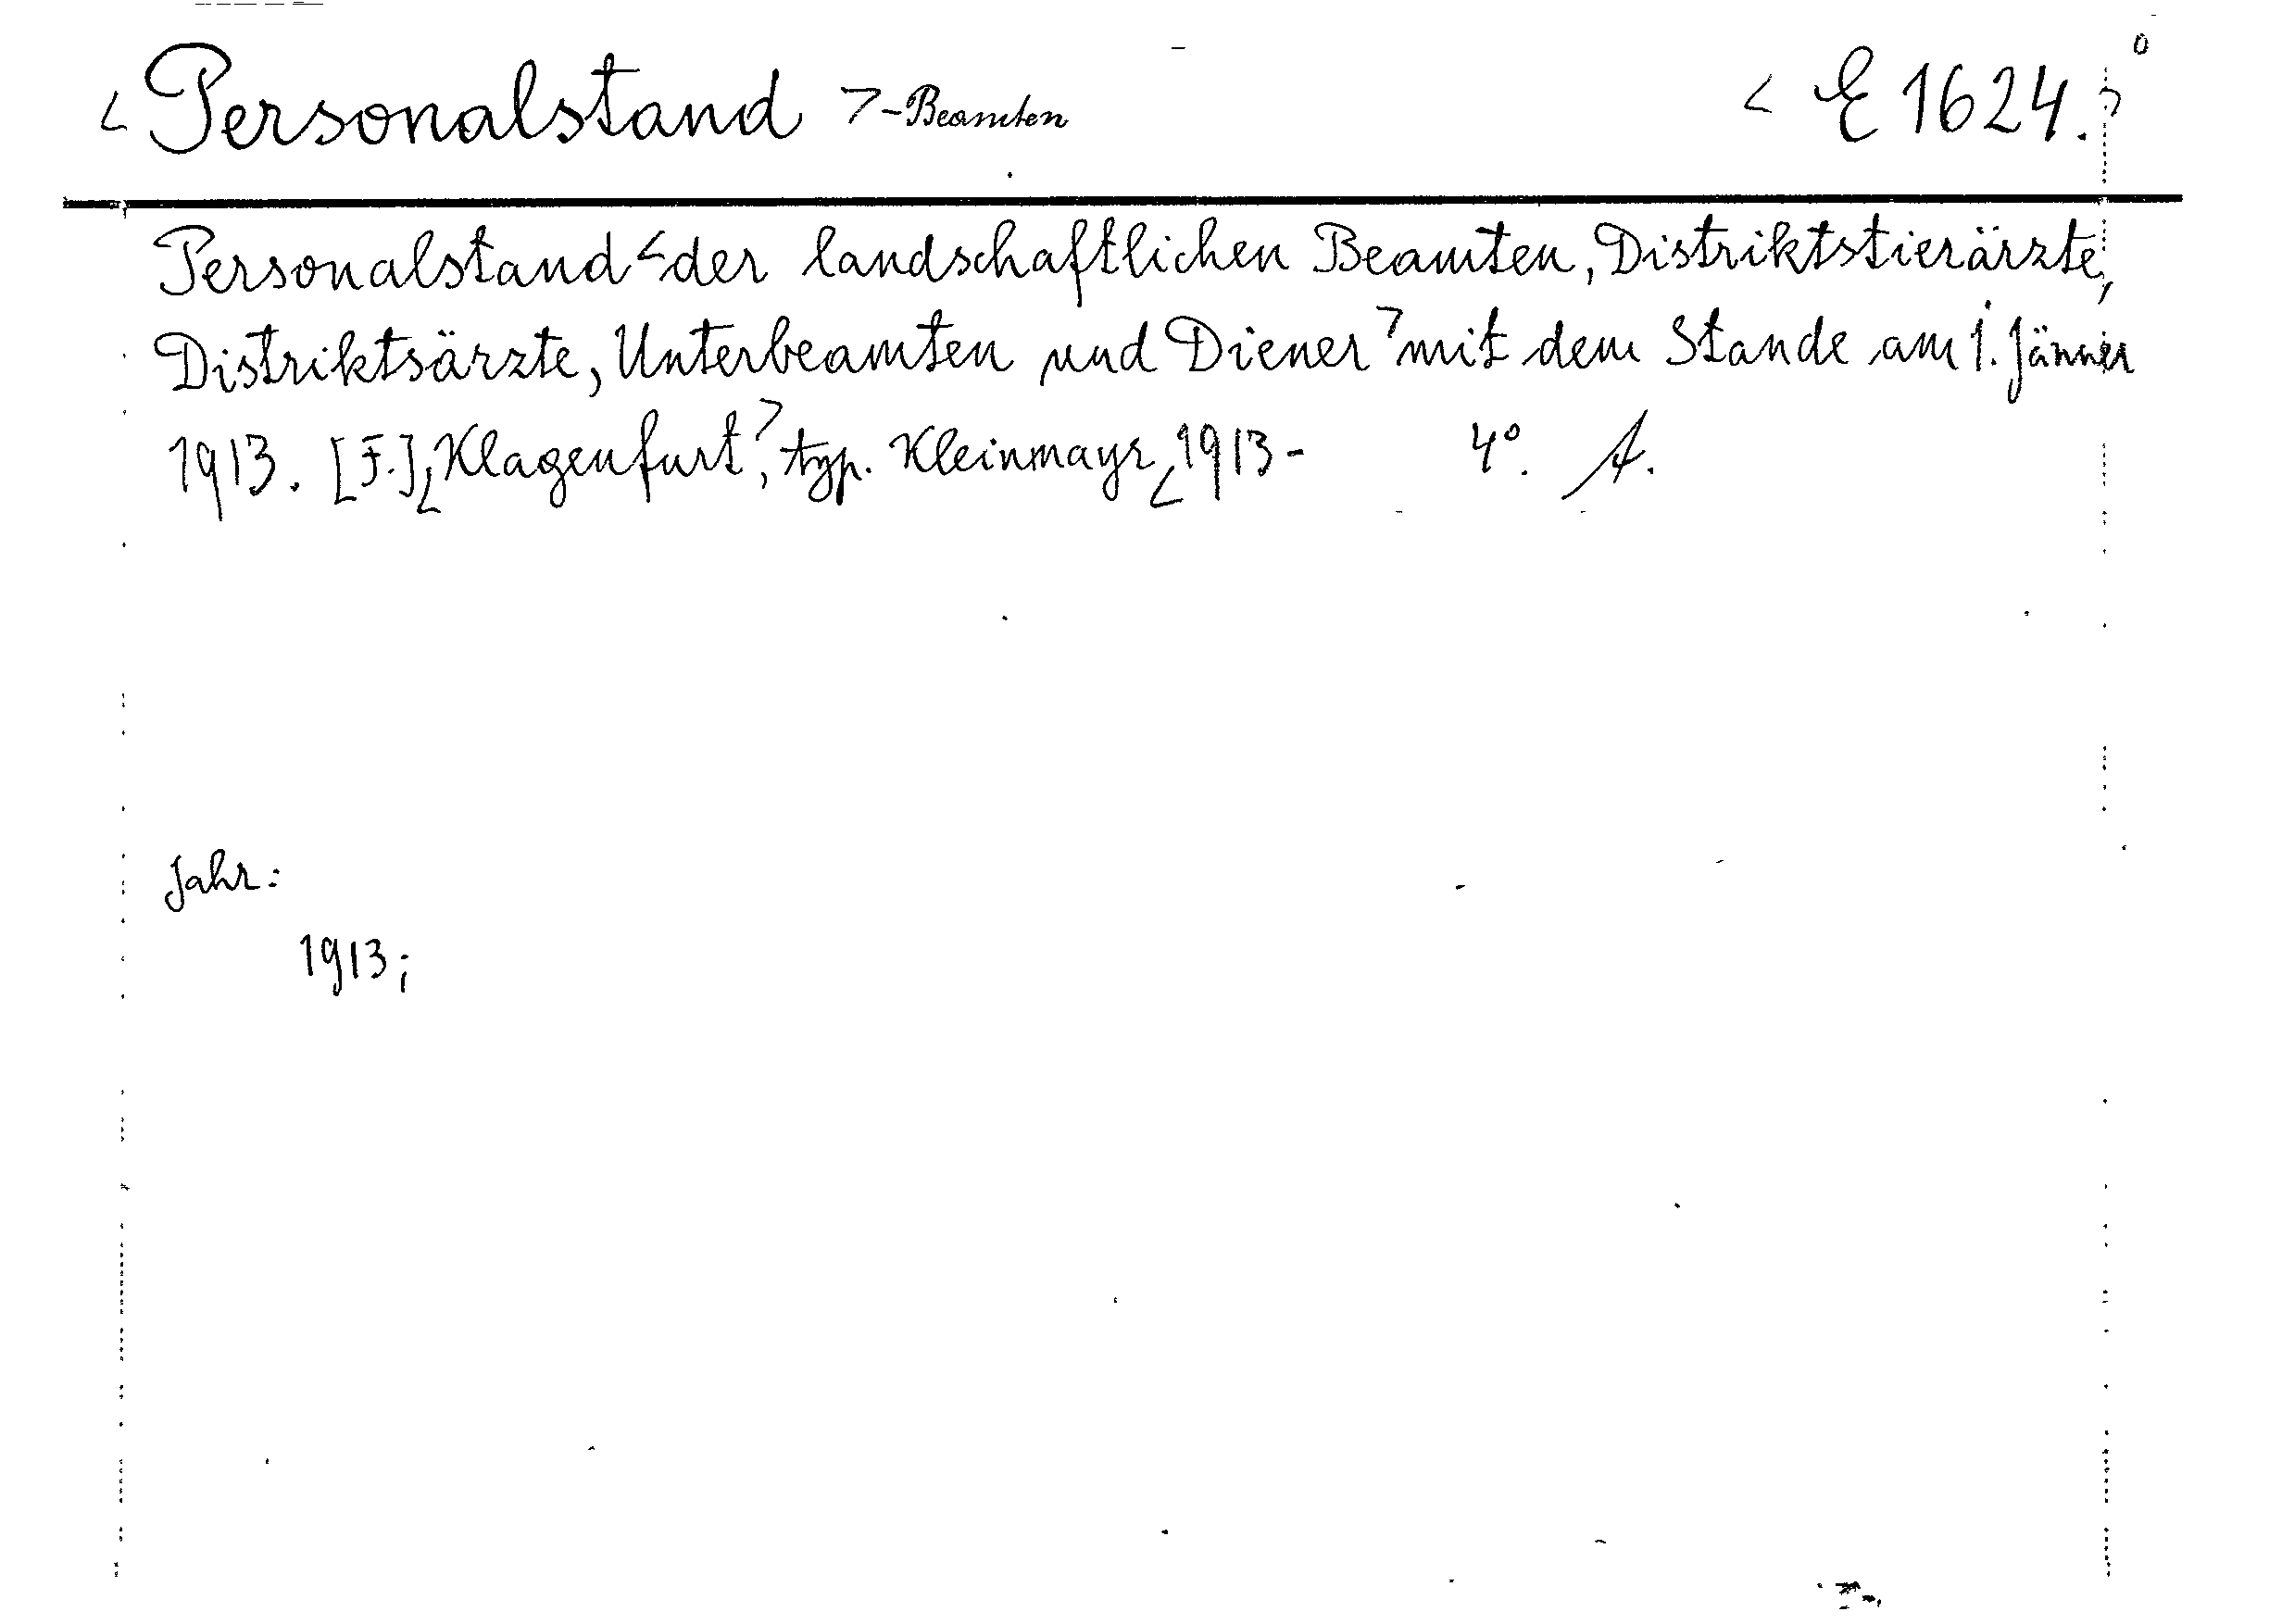 <Personalstand>-Beamten <E 1624.>
Personalstand <der landschaftlichen Beamten, Distriktstierärzte,
Distriktsärzte, Unterbeamten und Diener> mit dem Stande am 1. Jänner
1913. [F.] <Klagenfurt>, typ. Kleinmayr <1913- 4°. A.
Jahr:
1913;